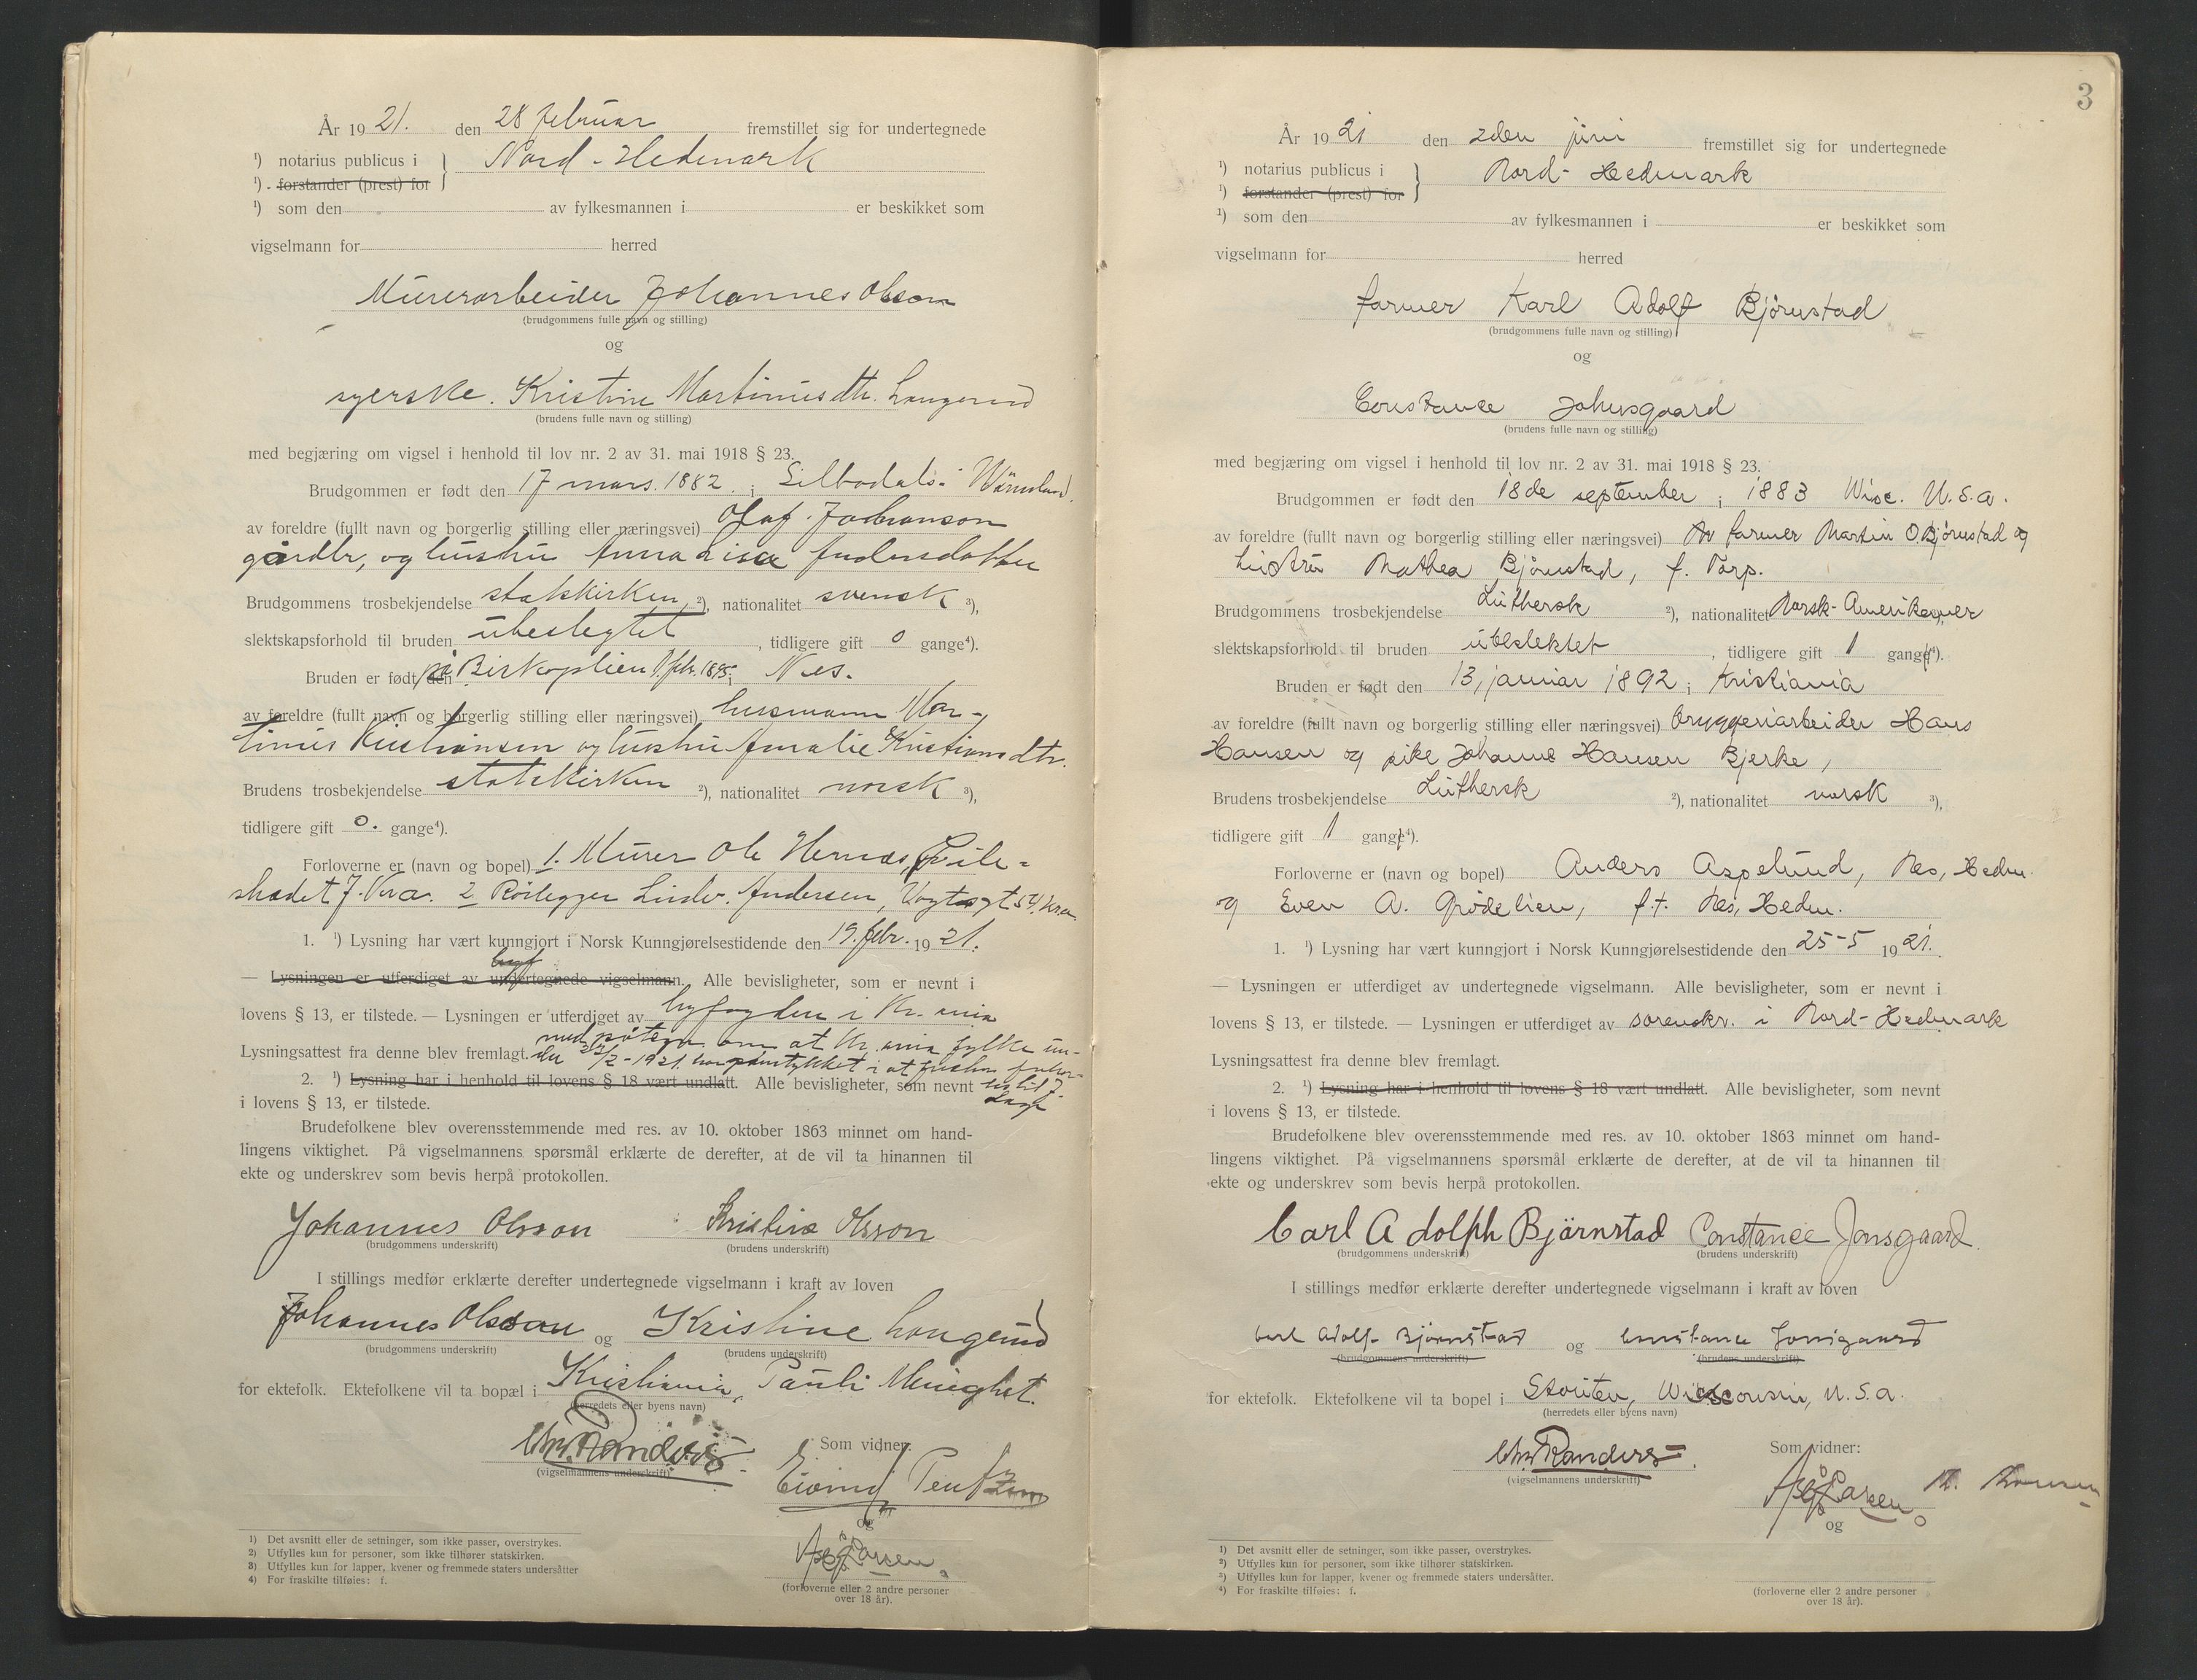 År 1921. den 28 februar fremstillet sig for undertegnede
¹) notarius publicus i } Nord-Hedemark
¹) forstander (prest) for
¹) som den av fylkesmannen i er beskikket som
vigselmann for herred
Murerarbeider Johannes Olsson
(brudgommens fulle navn og stilling)
og
syerske. Kristine Martinusdtr. Langerud
(brudens fulle navn og stilling)
med begjæring om vigsel i henhold til lov nr. 2 av 31. mai 1918 § 23.
Brudgommen er født den 17 mars. 1882. i Silbodals- Wärmland.
av foreldre (fullt navn og borgerlig stilling eller næringsvei) Olaf Johanson
gårdbr, og hustru Anna Lisa Andersdotter
Brudgommens trosbekjendelse statskirken ²), nationalitet svensk ³),
slektskapsforhold til bruden ubeslegtet, tidligere gift 0 gange⁴).
Bruden er født den på 1 febr. 1895 i Nes.
av foreldre (fullt navn og borgerlig stilling eller næringsvei) husmann Mar-
tinus Kristiansen og hustru Amalie Kristiansdtr.
Brudens trosbekjendelse statskirken ²), nationalitet norsk ³),
tidligere gift 0. gange⁴).
Forloverne er (navn og bopel) 1. Murer Ole Hernes, Pile-
stredet 7. Kra. 2 Rørlegger Andersen, 54, Kra.
1. ¹) Lysning har vært kunngjort i Norsk Kunngjørelsestidende den 19. febr. 1921.
— Lysningen er utferdiget av undertegnede vigselmann. Alle bevisligheter, som er nevnt i
lovens § 13, er tilstede. — Lysningen er utferdiget av byfogden i Kr.ania
Lysningsattest fra denne blev fremlagt. med påtegn. om at Kr.ania fylke un-
der /2-1921 har samtykket i at fristen
2. ¹) Lysning har i henhold til lovens § 18 vært undlatt. Alle bevisligheter, som nevnt
i lovens § 13, er tilstede.
Brudefolkene blev overensstemmende med res. av 10. oktober 1863 minnet om hand-
lingens viktighet. På vigselmannens spørsmål erklærte de derefter, at de vil ta hinannen til
ekte og underskrev som bevis herpå protokollen.
Johannes Olsson Kristine Olsson
(brudgommens underskrift) (brudens underskrift)
I stillings medfør erklærte derefter undertegnede vigselmann i kraft av loven
Johannes Olsson og Kristine Langerud
(brudgommens underskrift) (brudens underskrift)
for ektefolk. Ektefolkene vil ta bopæl i Kristiania, Pauli Menighet.
(herredets eller byens navn)
Chr. Randers
(vigselmannens underskrift)
Som vidner:
Eivind
og
Larsen
(forloverne eller 2 andre personer
over 18 år).
1) Det avsnitt eller de setninger, som ikke passer, overstrykes.
2) Utfylles kun for personer, som ikke tilhører statskirken.
3) Utfylles kun for lapper, kvener og fremmede staters undersåtter
4) For fraskilte tilføies: f.
3
År 1921 den 2den juni fremstillet sig for undertegnede
¹) notarius publicus i } Nord-Hedmark
¹) forstander (prest) for
¹) som den av fylkesmannen i er beskikket som
vigselmann for herred
farmer Karl Adolf Bjørnstad
(brudgommens fulle navn og stilling)
og
Constance Johnsgaard
(brudens fulle navn og stilling)
med begjæring om vigsel i henhold til lov nr. 2 av 31. mai 1918 § 23.
Brudgommen er født den 18de september i 1883 Wisc. U.S.a.
av foreldre (fullt navn og borgerlig stilling eller næringsvei) Av farmer Martin O. Bjørnstad og
hustru Mathea Bjørnstad, f. Torp.
Brudgommens trosbekjendelse Luthersk ²), nationalitet Norsk-Amerikaner
slektskapsforhold til bruden ubeslektet, tidligere gift 1 gang⁴).
Bruden er født den 13, januar 1892 i Kristiania
av foreldre (fullt navn og borgerlig stilling eller næringsvei) bryggeriarbeider Hans
Hansen og pike Johanne Hansen Bjerke,
Brudens trosbekjendelse Luthersk ²), nationalitet norsk ³),
tidligere gift 1 gang⁴).
Forloverne er (navn og bopel) Anders Aspelund, Nes, Hedm.
og Even A. Grødelien, f.t. Nes, Hedm.
1. ¹) Lysning har vært kunngjort i Norsk Kunngjørelsestidende den 25-5 1921.
— Lysningen er utferdiget av undertegnede vigselmann. Alle bevisligheter, som er nevnt i
lovens § 13, er tilstede. — Lysningen er utferdiget av sorenskr. i Nord-Hedmark
Lysningsattest fra denne blev fremlagt.
2. ¹) Lysning har i henhold til lovens § 18 vært undlatt. Alle bevisligheter, som nevnt
i lovens § 13, er tilstede.
Brudefolkene blev overensstemmende med res. av 10. oktober 1863 minnet om hand-
lingens viktighet. På vigselmannens spørsmål erklærte de derefter, at de vil ta hinannen til
ekte og underskrev som bevis herpå protokollen.
Carl Adolph Bjørnstad Constance Jonsgaard.
(brudgommens underskrift) (brudens underskrift)
I stillings medfør erklærte derefter undertegnede vigselmann i kraft av loven
Carl Adolf Bjørnstad og Constance Jonsgaard
(brudgommens underskrift) (brudens underskrift)
for ektefolk. Ektefolkene vil ta bopel i Wisconsin, U.S.a.
(herredets eller byens navn)
Chr. Randers
(vigselmannens underskrift)
Som vidner:
Larsen
og
(forloverne eller 2 andre personer
over 18 år).
1) Det avsnitt eller de setninger, som ikke passer, overstrykes.
²) Utfylles kun for personer, som ikke tilhører statskirken.
³) Utfylles kun for lapper, kvener og fremmede staters undersåtter.
⁴) For fraskilte tilføies: f.